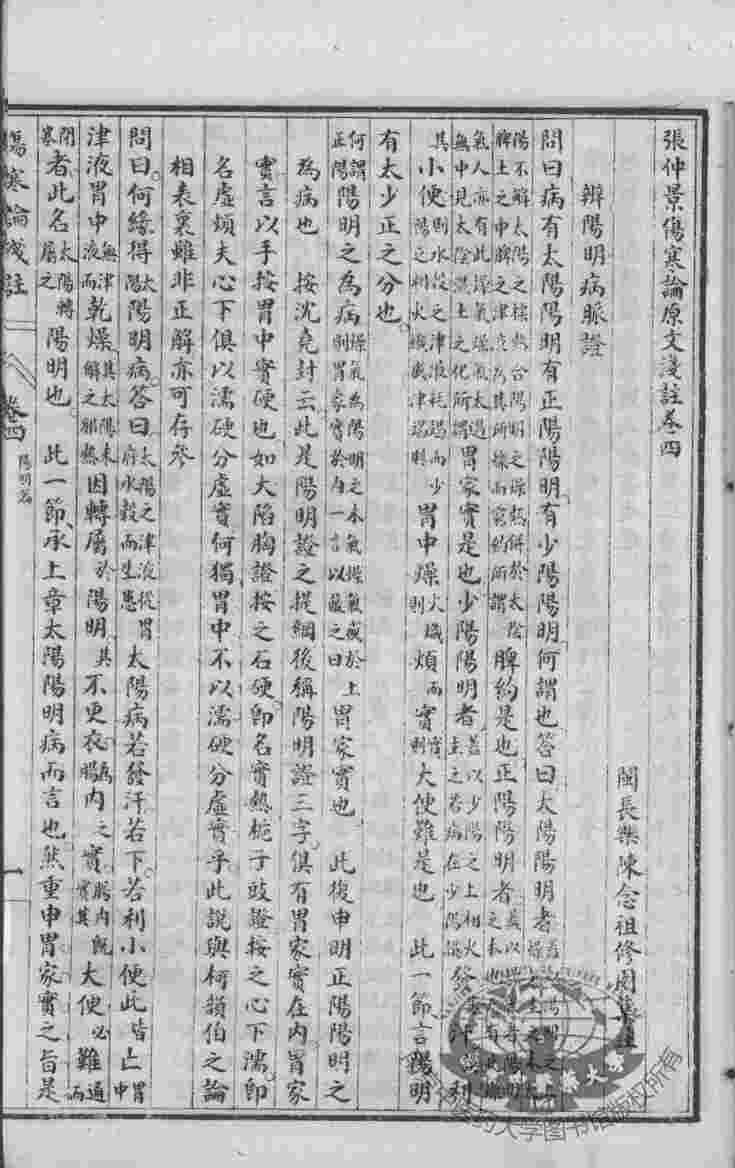 張仲景傷寒論原文淺註卷四
閩長樂陳念祖修園集註
辨陽明病脈證
問曰病有太陽陽明有正陽陽明有少陽陽明何謂也答曰太陽陽明者
陽不解太陽之標熱合陽明之燥熱併於太陰脾土之中脾之津液為其所爍而窮約所謂脾約是也正陽陽明者
氣人亦有此燥氣燥氣太過無中見太陰濕土之化所謂胃家實是也少陽陽明者蓋以少陽之上相火主之若病在少陽發汗利
其小便則水穀之津液耗竭而少陽之相火熾盛津竭胃中燥火熾則煩而實實則大便難是也 此一節言陽明
有太少正之分也
何謂正陽陽明之為病燥氣為陽明之本氣燥氣盛於上則胃家實於內一言以蔽之曰胃家實也 此復申明正陽陽明之
為病也 按沈堯封云此是陽明證之提綱後稱陽明證三字俱有胃家實在內胃家
實言以手按胃中實硬也如大陷胸證按之石硬即名實熱梔子豉證按之心下濡即
名虛煩夫心下俱以濡硬分虛實何獨胃中不以濡硬分虛實乎此說與柯韻伯之論
相表裏雖非正解亦可存參
問曰何緣得太陽陽明病答曰太陽之津液從胃府水穀而生患太陽病若發汗若下若利小便此皆亡胃中
津液胃中無津液而乾燥其太陽未解之邪熱因轉屬於陽明其不更衣為腸內之實腸內既實其大便必難通而
閉塞者此名太陽轉屬之陽明也 此一節承上章太陽陽明病而言也然重申胃家實之旨是
傷寒論淺註
卷四
陽明篇
一